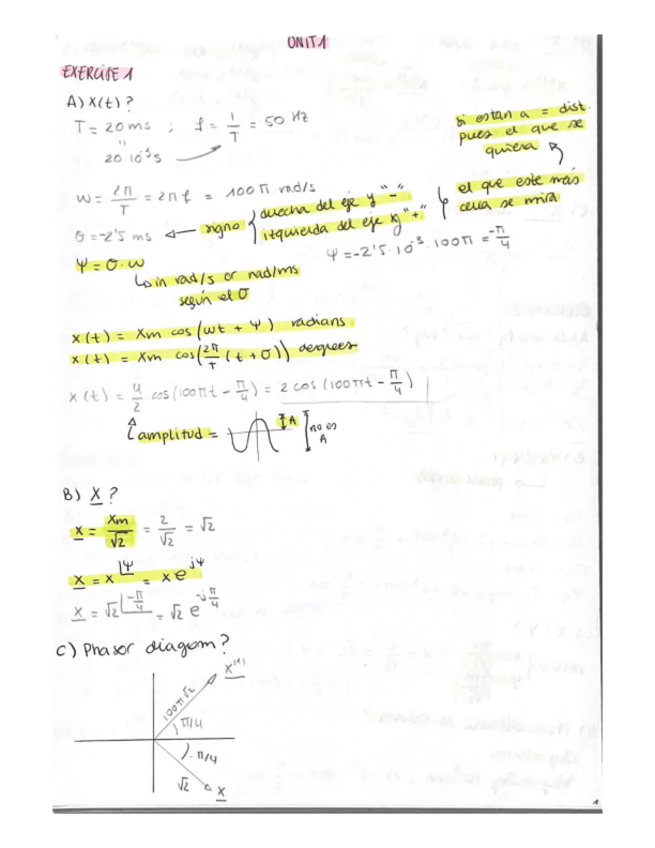 UNIT 1
EXERCISE 1
A) X(t)?
T = 20 ms ; f = 1/T = 50 Hz
20·10⁻³s
si estan a = dist.
pues el que se
quiera
el que este más
cerca se mira
ω = 2π/T = 2πf = 100π rad/s
θ = -2'5 ms ← signo { derecha del eje y "-"
izquierda del eje y "+"
Ψ = θ·ω
Ψ = -2'5·10⁻³·100π = -π/4
↳ in rad/s or rad/ms
según el θ
x(t) = Xm cos(ωt + Ψ) radians
x(t) = Xm cos(2π/T (t + θ)) degrees
x(t) = 4/2 cos(100πt - π/4) = 2 cos(100πt - π/4)
amplitud = A no es
A
B) X?
x = Xm/√2 = 2/√2 = √2
x = x|Ψ = x e^jΨ
x = √2|-π/4 = √2 e^-jπ/4
C) Phasor diagram?
X⁽¹⁾
100π√2
π/4
-π/4
√2
X
1